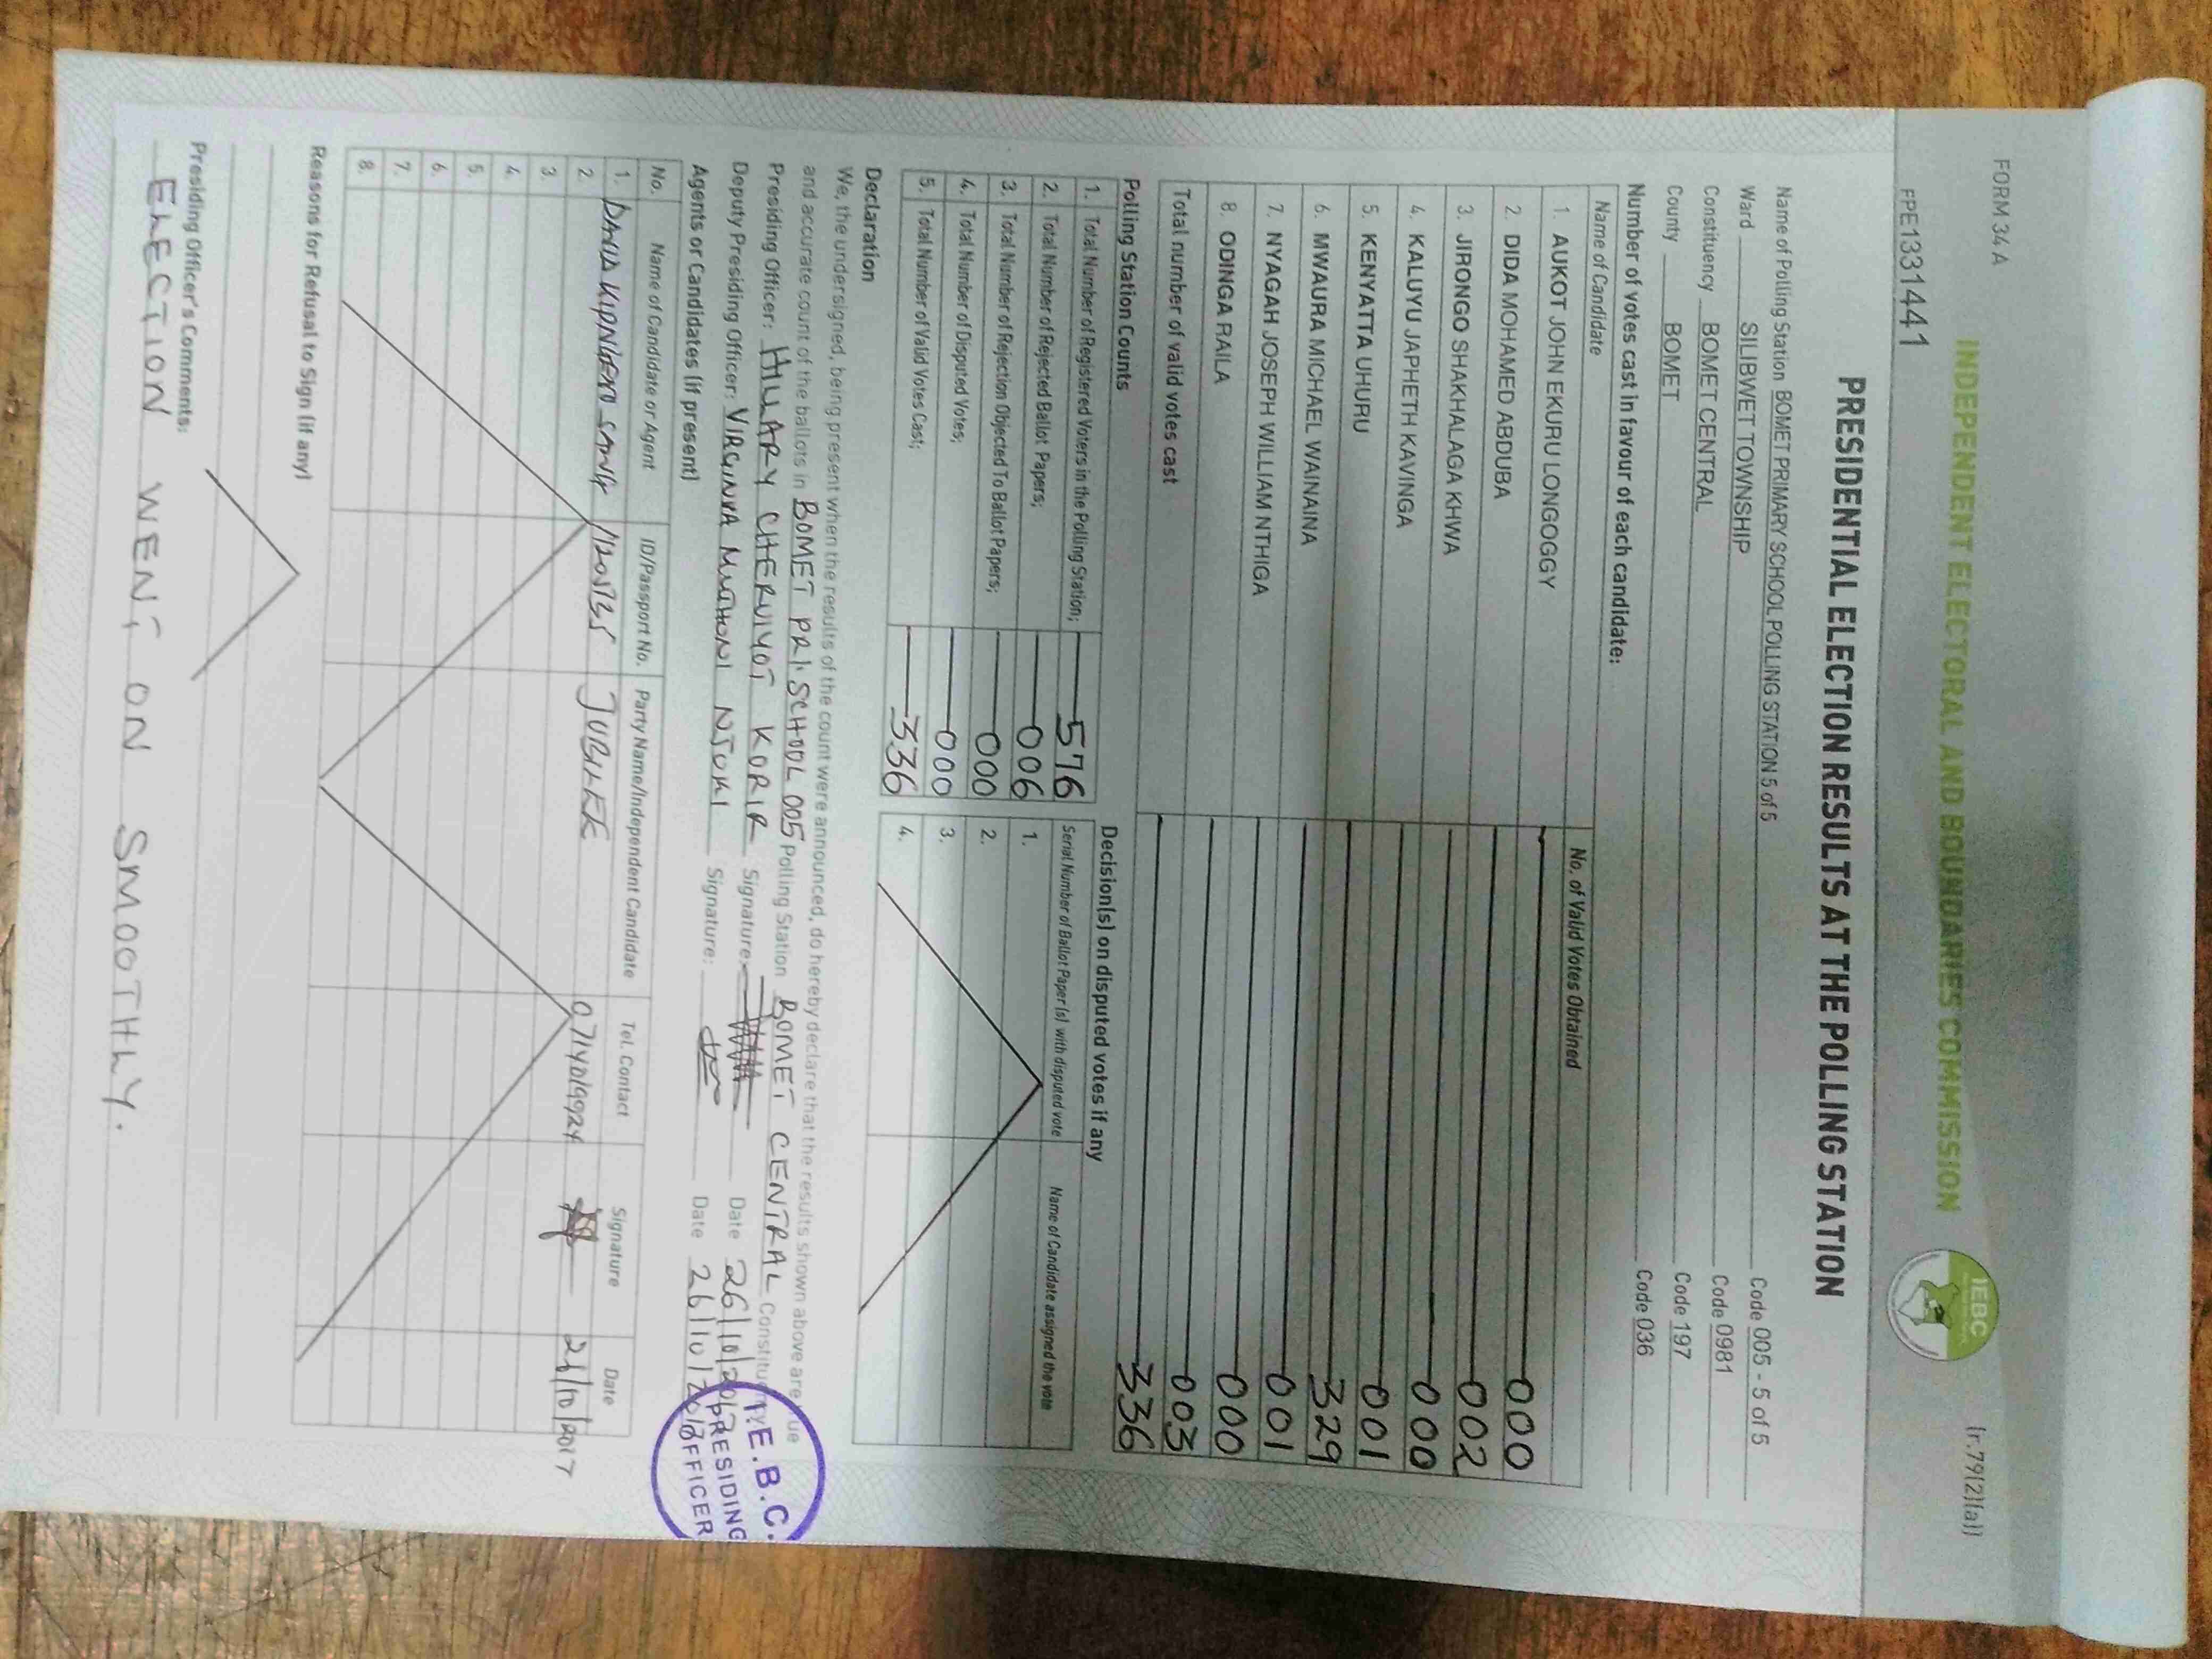 FORM 34A
(r.79(2)(a))
INDEPENDENT ELECTORAL AND BOUNDARIES COMMISSION
IEBC
FPE1331441
PRESIDENTIAL ELECTION RESULTS AT THE POLLING STATION
Name of Polling Station BOMET PRIMARY SCHOOL POLLING STATION 5 of 5 Code 005 - 5 of 5
Ward SILIBWET TOWNSHIP Code 0981
Constituency BOMET CENTRAL Code 197
County BOMET Code 036
Number of votes cast in favour of each candidate:
Name of Candidate No. of Valid Votes Obtained
1. AUKOT JOHN EKURU LONGOGGY 000
2. DIDA MOHAMED ABDUBA 002
3. JIRONGO SHAKHALAGA KHWA 000
4. KALUYU JAPHETH KAVINGA 001
5. KENYATTA UHURU 329
6. MWAURA MICHAEL WAINAINA 001
7. NYAGAH JOSEPH WILLIAM NTHIGA 000
8. ODINGA RAILA 003
Total number of valid votes cast 336
Polling Station Counts
1. Total Number of Registered Voters in the Polling Station; 576
2. Total Number of Rejected Ballot Papers; 006
3. Total Number of Rejection Objected To Ballot Papers; 000
4. Total Number of Disputed Votes; 000
5. Total Number of Valid Votes Cast; 336
Decision(s) on disputed votes if any
Serial Number of Ballot Paper(s) with disputed vote Name of Candidate assigned the vote
1.
2.
3.
4.
Declaration
We, the undersigned, being present when the results of the count were announced, do hereby declare that the results shown above are true
and accurate count of the ballots in BOMET PRI. SCHOOL 005 Polling Station BOMET CENTRAL Constituency
Presiding Officer: HILLARY CHERUIYOT KORIR Signature: Date 26/10/2017
Deputy Presiding Officer: VIRGINIA MUTHONI NJUKI Signature: Date 26/10/2017
I.E.B.C.
PRESIDING
OFFICER
Agents or Candidates (if present)
No. Name of Candidate or Agent ID/Passport No. Party Name/Independent Candidate Tel. Contact Signature Date
1. SANG JUBILEE 0714019924
2.
3.
4.
5.
6.
7.
8.
Reasons for Refusal to Sign (if any)
Presiding Officer's Comments:
ELECTION WENT ON SMOOTHLY.